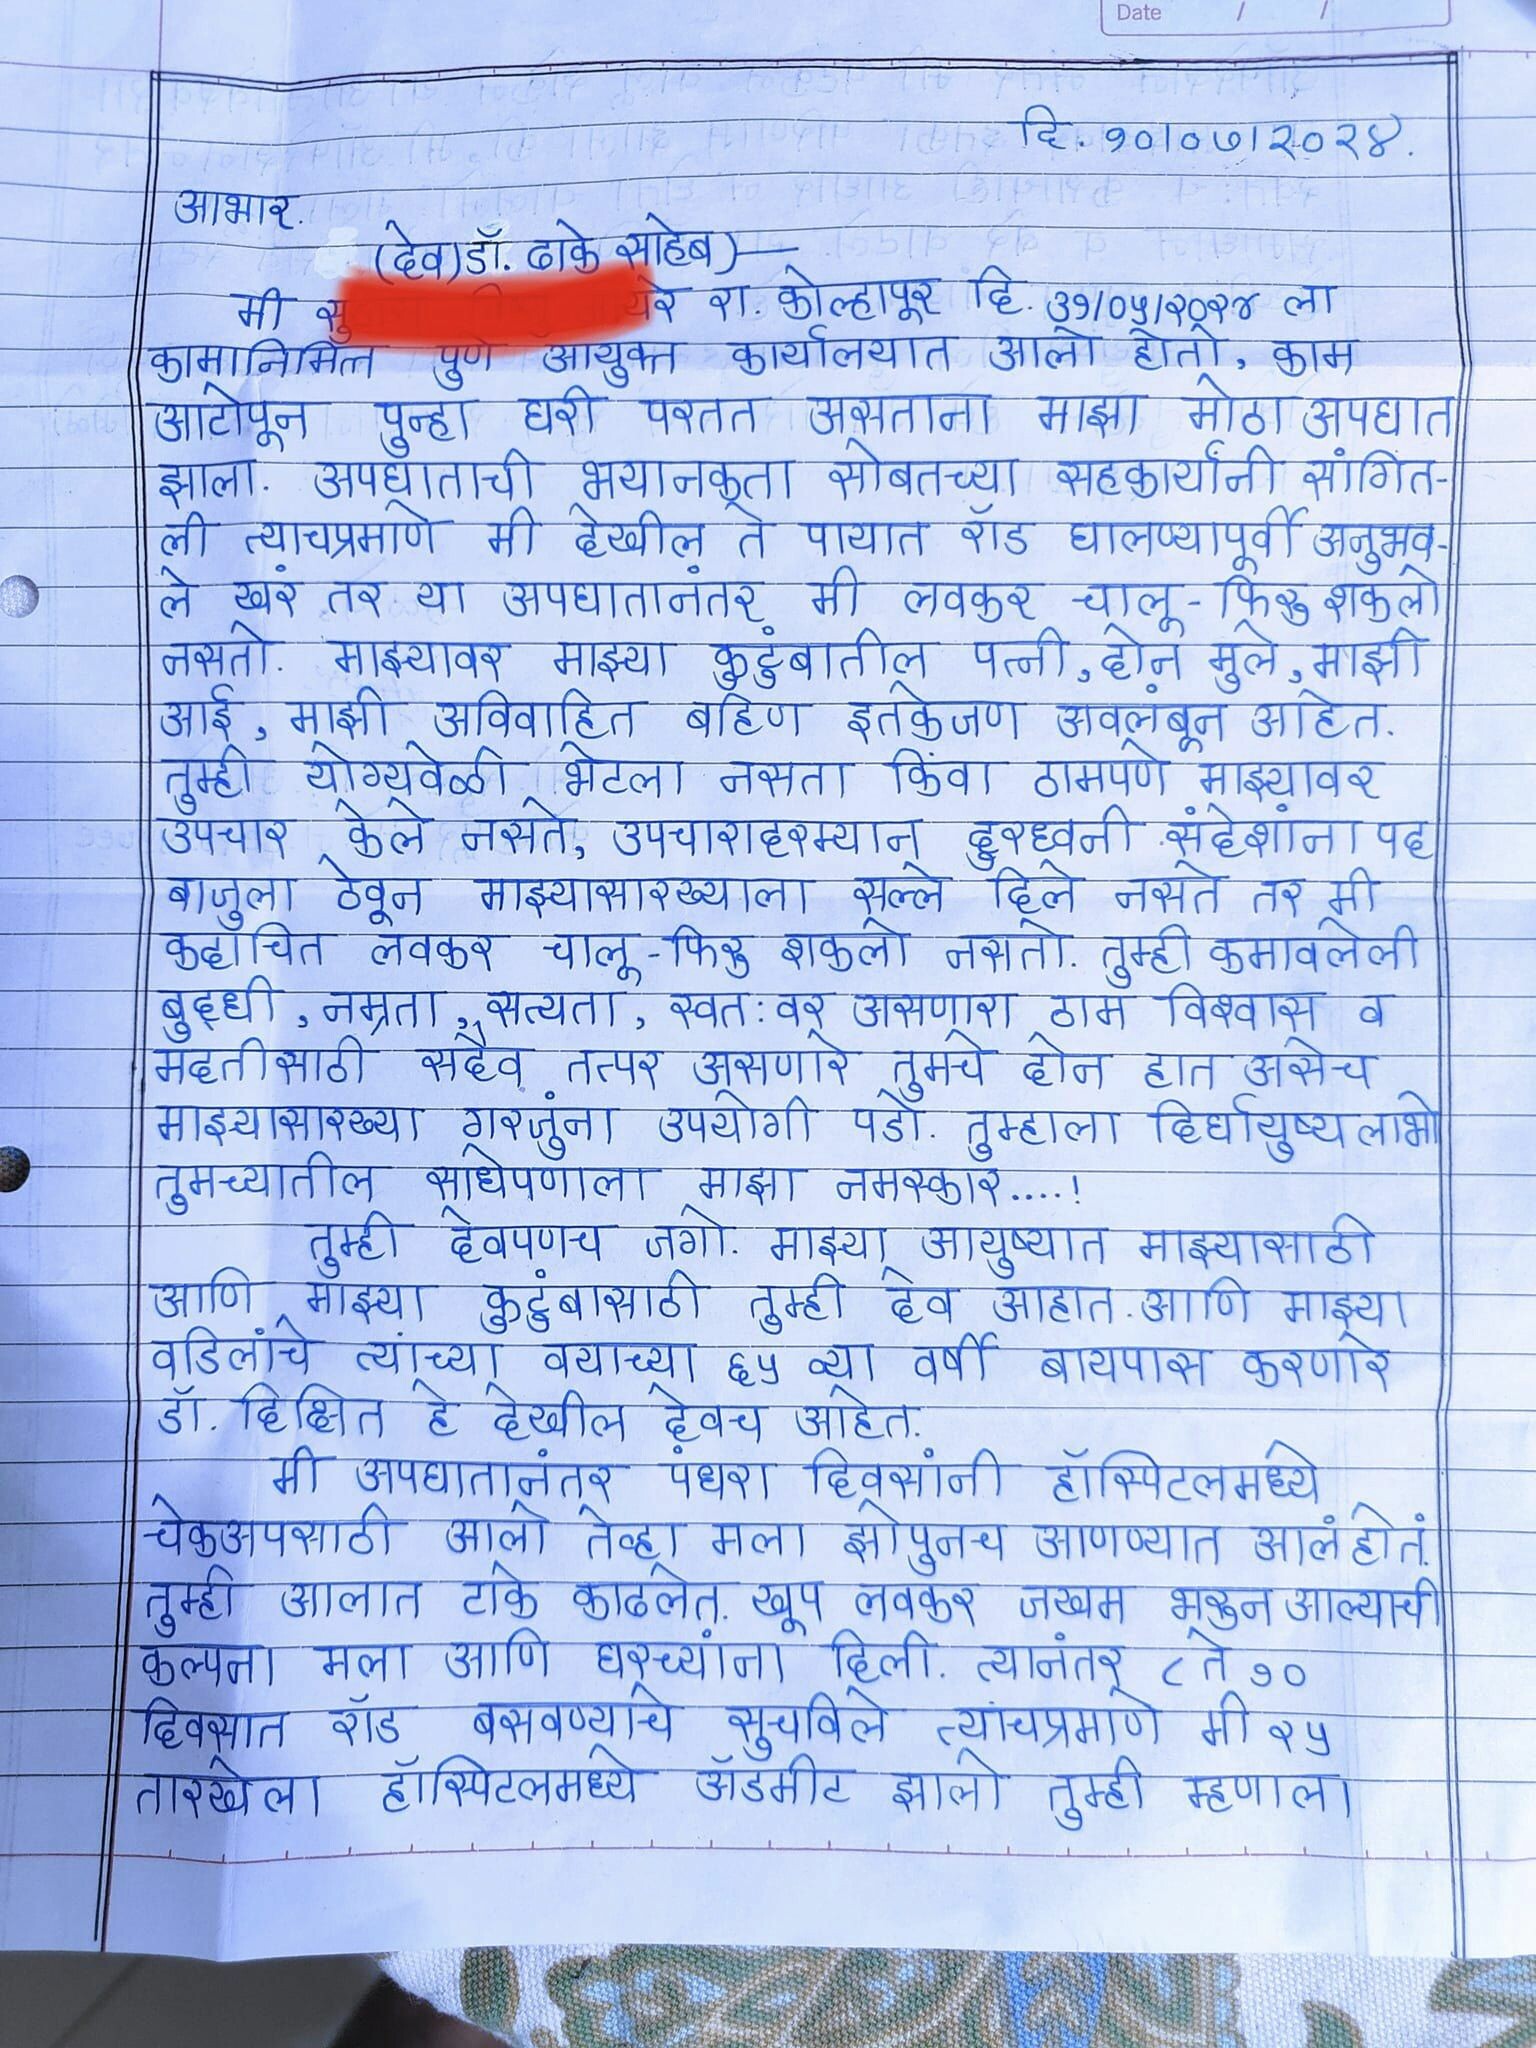 Date / /
दि. १०/०७/२०२४.
आभार.
(देव) डॉ. ढाके साहेब) —
मी रा. कोल्हापूर दि. ३१/०५/२०२४ ला
कामानिमित्त पुणे आयुक्त कार्यालयात आलो होतो, काम
आटोपून पुन्हा घरी परतत असताना माझा मोठा अपघात
झाला. अपघाताची भयानकता सोबतच्या सहकार्यांनी सांगित-
ली त्याचप्रमाणे मी देखील ते पायात रॉड घालण्यापूर्वी अनुभव-
ले खरं तर या अपघातानंतर मी लवकर चालू-फिरू शकलो
नसतो. माझ्यावर माझ्या कुटुंबातील पत्नी, दोन मुले, माझी
आई, माझी अविवाहित बहिण इतकेजण अवलंबून आहेत.
तुम्ही योग्यवेळी भेटला नसता किंवा ठामपणे माझ्यावर
उपचार केले नसते, उपचारादरम्यान दुरध्वनी संदेशांना पद
बाजुला ठेवून माझ्यासारख्याला सल्ले दिले नसते तर मी
कदाचित लवकर चालू-फिरू शकलो नसतो. तुम्ही कमावलेली
बुद्धी, नम्रता, सत्यता, स्वतःवर असणारा ठाम विश्वास व
मदतीसाठी सदैव तत्पर असणारे तुमचे दोन हात असेच
माझ्यासारख्या गरजुंना उपयोगी पडो. तुम्हाला दिर्घायुष्य लाभो
तुमच्यातील साधेपणाला माझा नमस्कार....!
तुम्ही देवपणच जगो. माझ्या आयुष्यात माझ्यासाठी
आणि माझ्या कुटुंबासाठी तुम्ही देव आहात. आणि माझ्या
वडिलांचे त्यांच्या वयाच्या ६५ व्या वर्षी बायपास करणारे
डॉ. दिक्षित हे देखील देवच आहेत.
मी अपघातानंतर पंधरा दिवसांनी हॉस्पिटलमध्ये
चेकअपसाठी आलो तेव्हा मला झोपुनच आणण्यात आलं होतं.
तुम्ही आलात टाके काढलेत. खूप लवकर जखम भरुन आल्याची
कल्पना मला आणि घरच्यांना दिली. त्यानंतर ८ ते १०
दिवसात रॉड बसवण्याचे सुचविले त्याचप्रमाणे मी २५
तारखेला हॉस्पिटलमध्ये ॲडमीट झालो तुम्ही म्हणाला